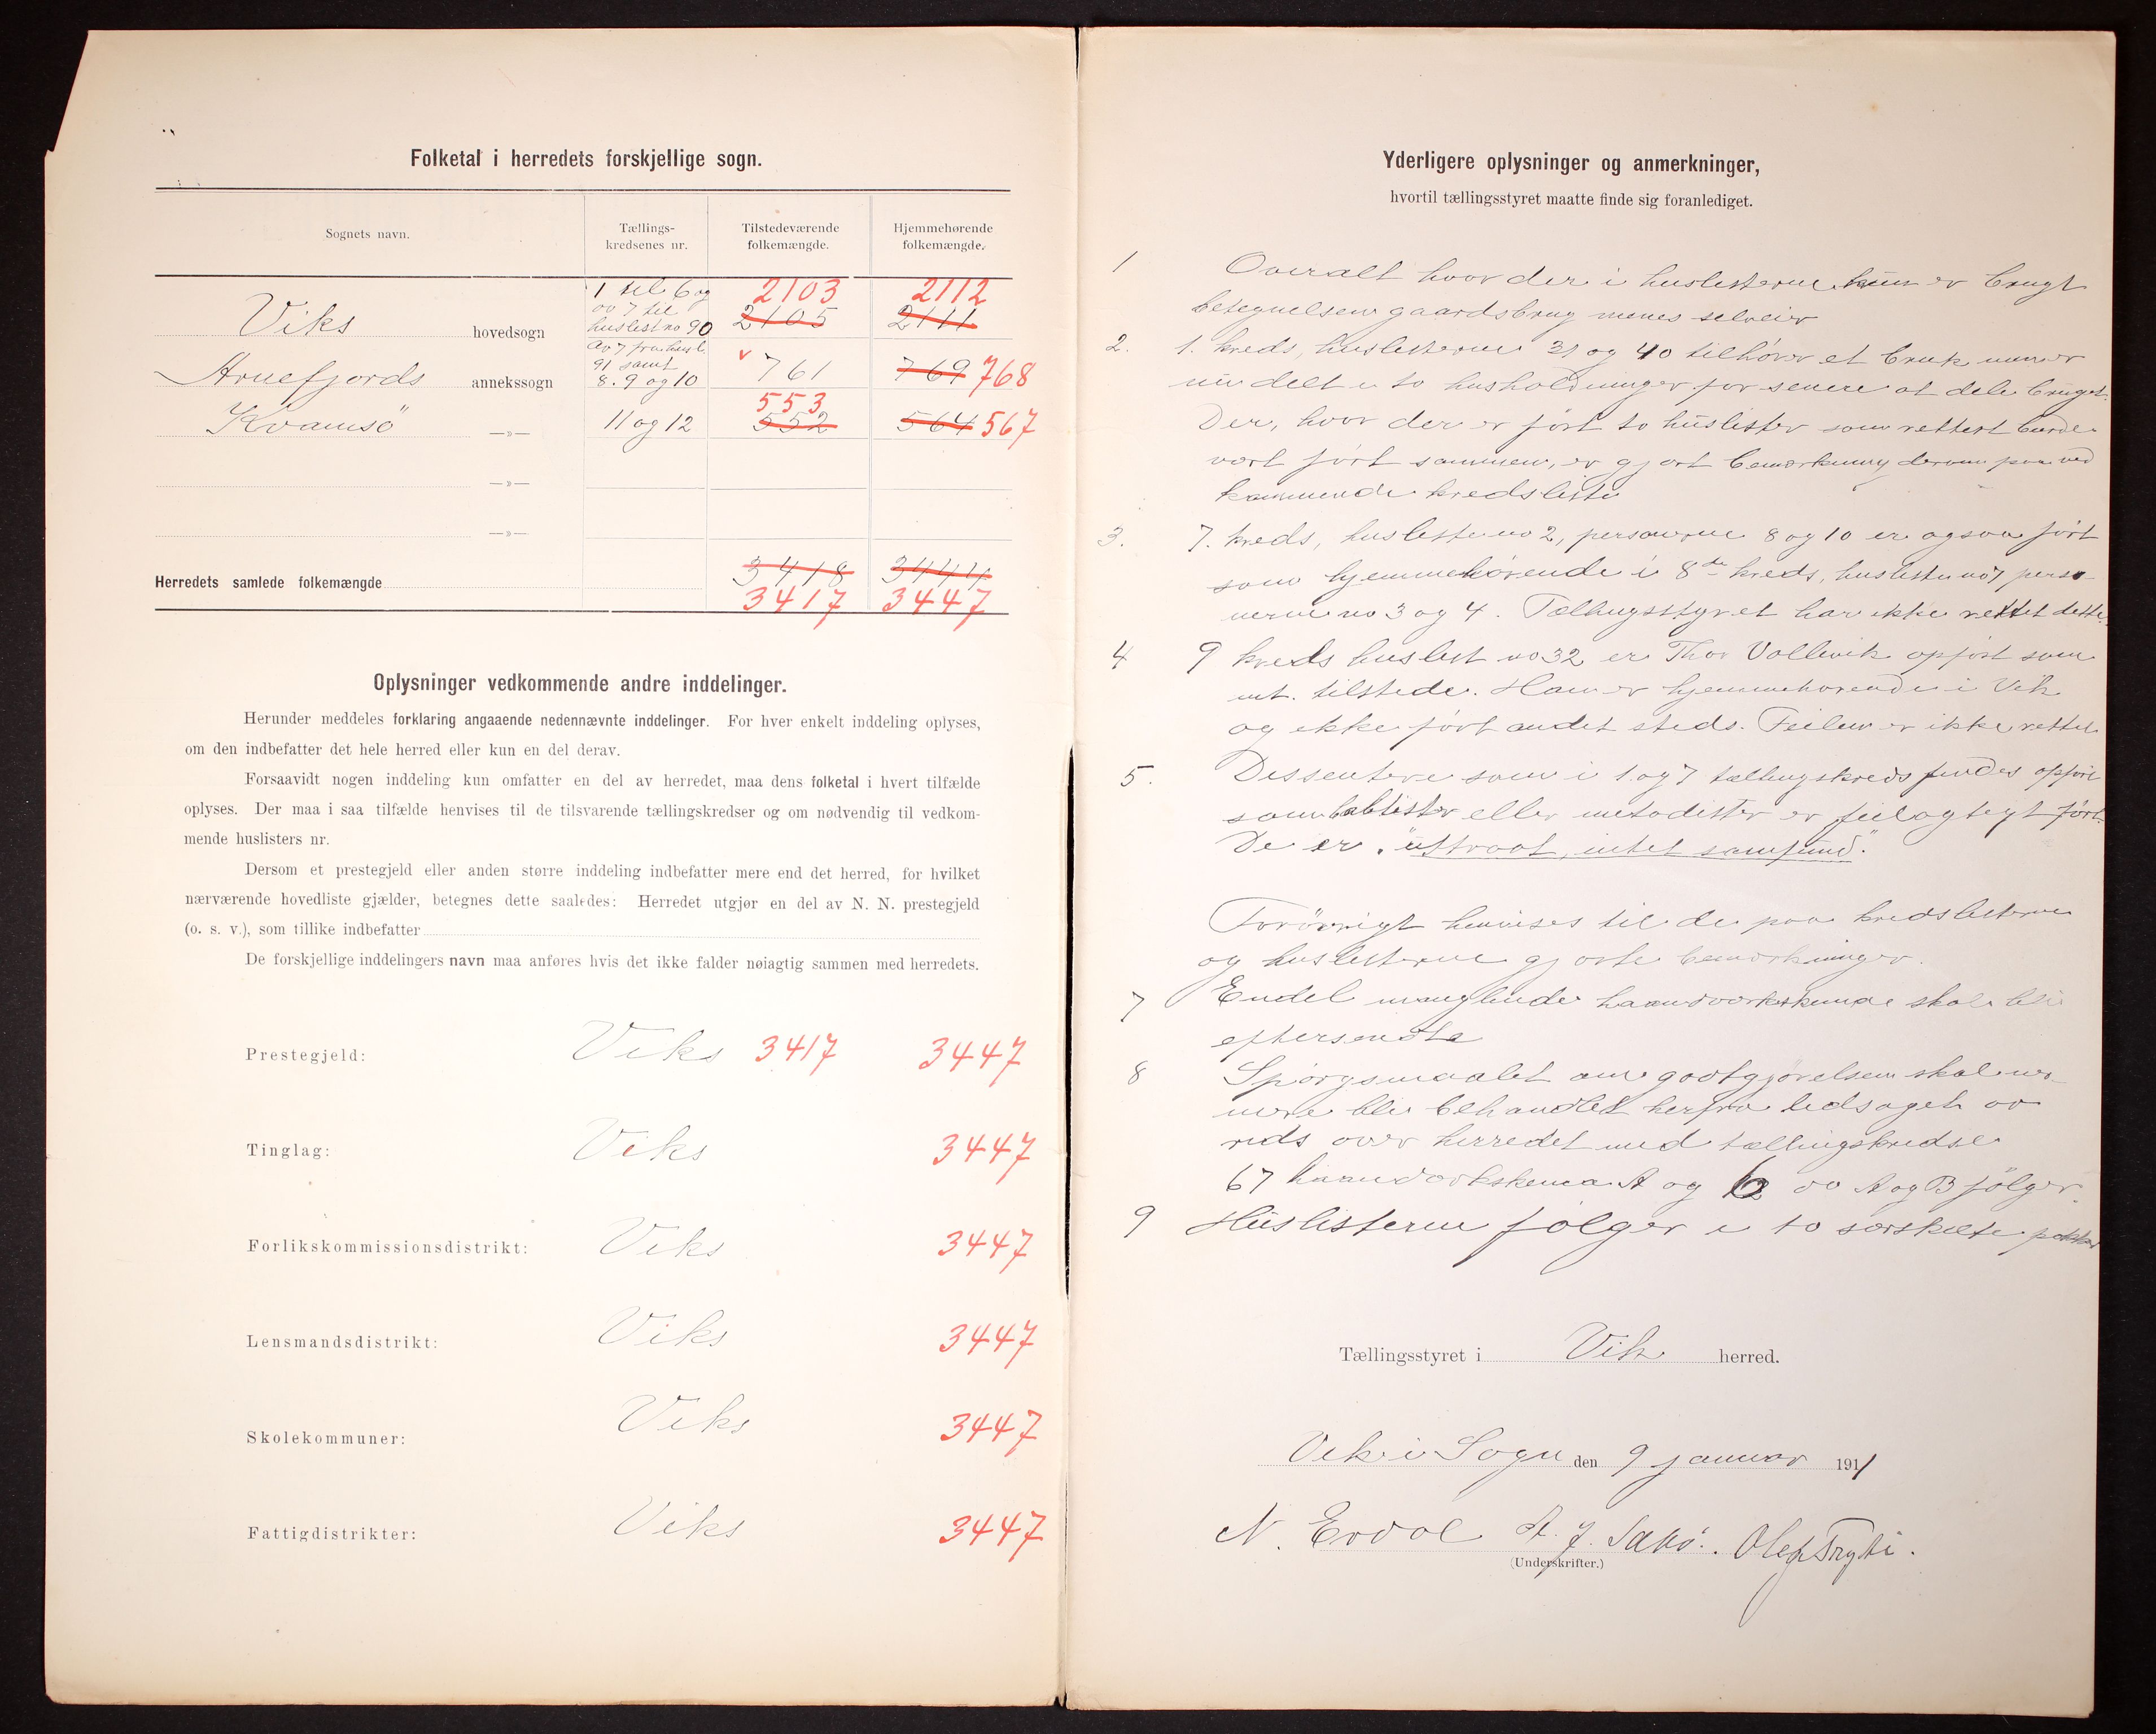 Folketal i herredets forskjellige sogn.
Sognets navn.
Tællings-
kredsenes nr.
Tilstedeværende
folkemængde.
Hjemmehørende
folkemængde.
Viks hovedsogn
1 til 6 og
av 7 til
huslist no 90
2103
2105
2112
2111
Arnefjords annekssogn
Av 7 fra husl.
91 samt
8. 9 og 10
761
769 768
Kvamsö —»—
11 og 12
553
552
564 567
—»—
—»—
Herredets samlede folkemængde
3418 3444
3417 3447
Oplysninger vedkommende andre inddelinger.
Herunder meddeles forklaring angaaende nedennævnte inddelinger. For hver enkelt inddeling oplyses,
om den indbefatter det hele herred eller kun en del derav.
Forsaavidt nogen inddeling kun omfatter en del av herredet, maa dens folketal i hvert tilfælde
oplyses. Der maa i saa tilfælde henvises til de tilsvarende tællingskredser og om nødvendig til vedkom-
mende huslisters nr.
Dersom et prestegjeld eller anden større inddeling indbefatter mere end det herred, for hvilket
nærværende hovedliste gjælder, betegnes dette saaledes: Herredet utgjør en del av N. N. prestegjeld
(o. s. v.), som tillike indbefatter
De forskjellige inddelingers navn maa anføres hvis det ikke falder nøiagtig sammen med herredets.
Prestegjeld: Viks 3417 3447
Tinglag: Viks 3447
Forlikskommissionsdistrikt: Viks 3447
Lensmandsdistrikt: Viks 3447
Skolekommuner: Viks 3447
Fattigdistrikter: Viks 3447
Yderligere oplysninger og anmerkninger,
hvortil tællingsstyret maatte finde sig foranlediget.
1 Overalt hvor der i huslisterne kun er brugt
betegnelsen gaardsbrug menes selveier
2. 1. kreds, huslisterne 31 og 40 tilhører et bruk men er
nu delt i to husholdninger for senere at dele bruget.
Der, hvor der er ført to huslister som rettest burde
vært ført sammen, er gjort bemerkning derom paa ved
kommende kredsliste
3. 7. kreds, husliste no 2, personerne 8 og 10 er ogsaa ført
som hjemmehörende i 8de kreds, husliste no 7 perso-
nerne no 3 og 4. Tællingsstyret har ikke rettet dette.
4 9 kreds huslist no 32 er Thor Vollevik opført som
mt. tilstede. Han er hjemmehörende i Vik
og ikke ført andet steds. Feilen er ikke rettet
5. Dissentere som i 1. og 7 tællingskreds findes opført
som babtister eller metodister er feilagtigt ført.
De er "uttraadt, intet samfund".
Forövrigt henvises til de paa kredslisterne
og huslisterne gjorte bemerkninger.
7 Endel manglende haandverkskema skal bli
eftersendte
8 Spörgsmaalet om godtgjørelsen skal nær
mere bli behandlet herfra ledsaget av
rids over herredet med tællingskredse
67 haandverkskema A og 6 av A og B fölger.
9 Huslisterne følger i to særskilte pakker
Tællingsstyret i Vik herred.
Vik i Sogn den 9 januar 1911
N. Ervol
(Underskrifter.)